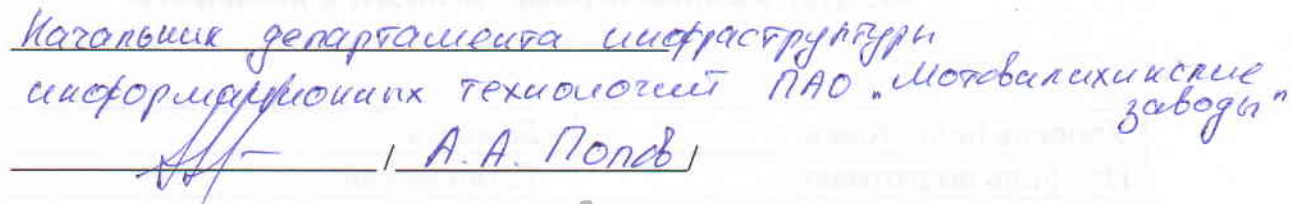 Начальник департамента инфраструктуры
информационных технологий ПАО "Мотовилихинские
заводы"
/ А.А. Попов /